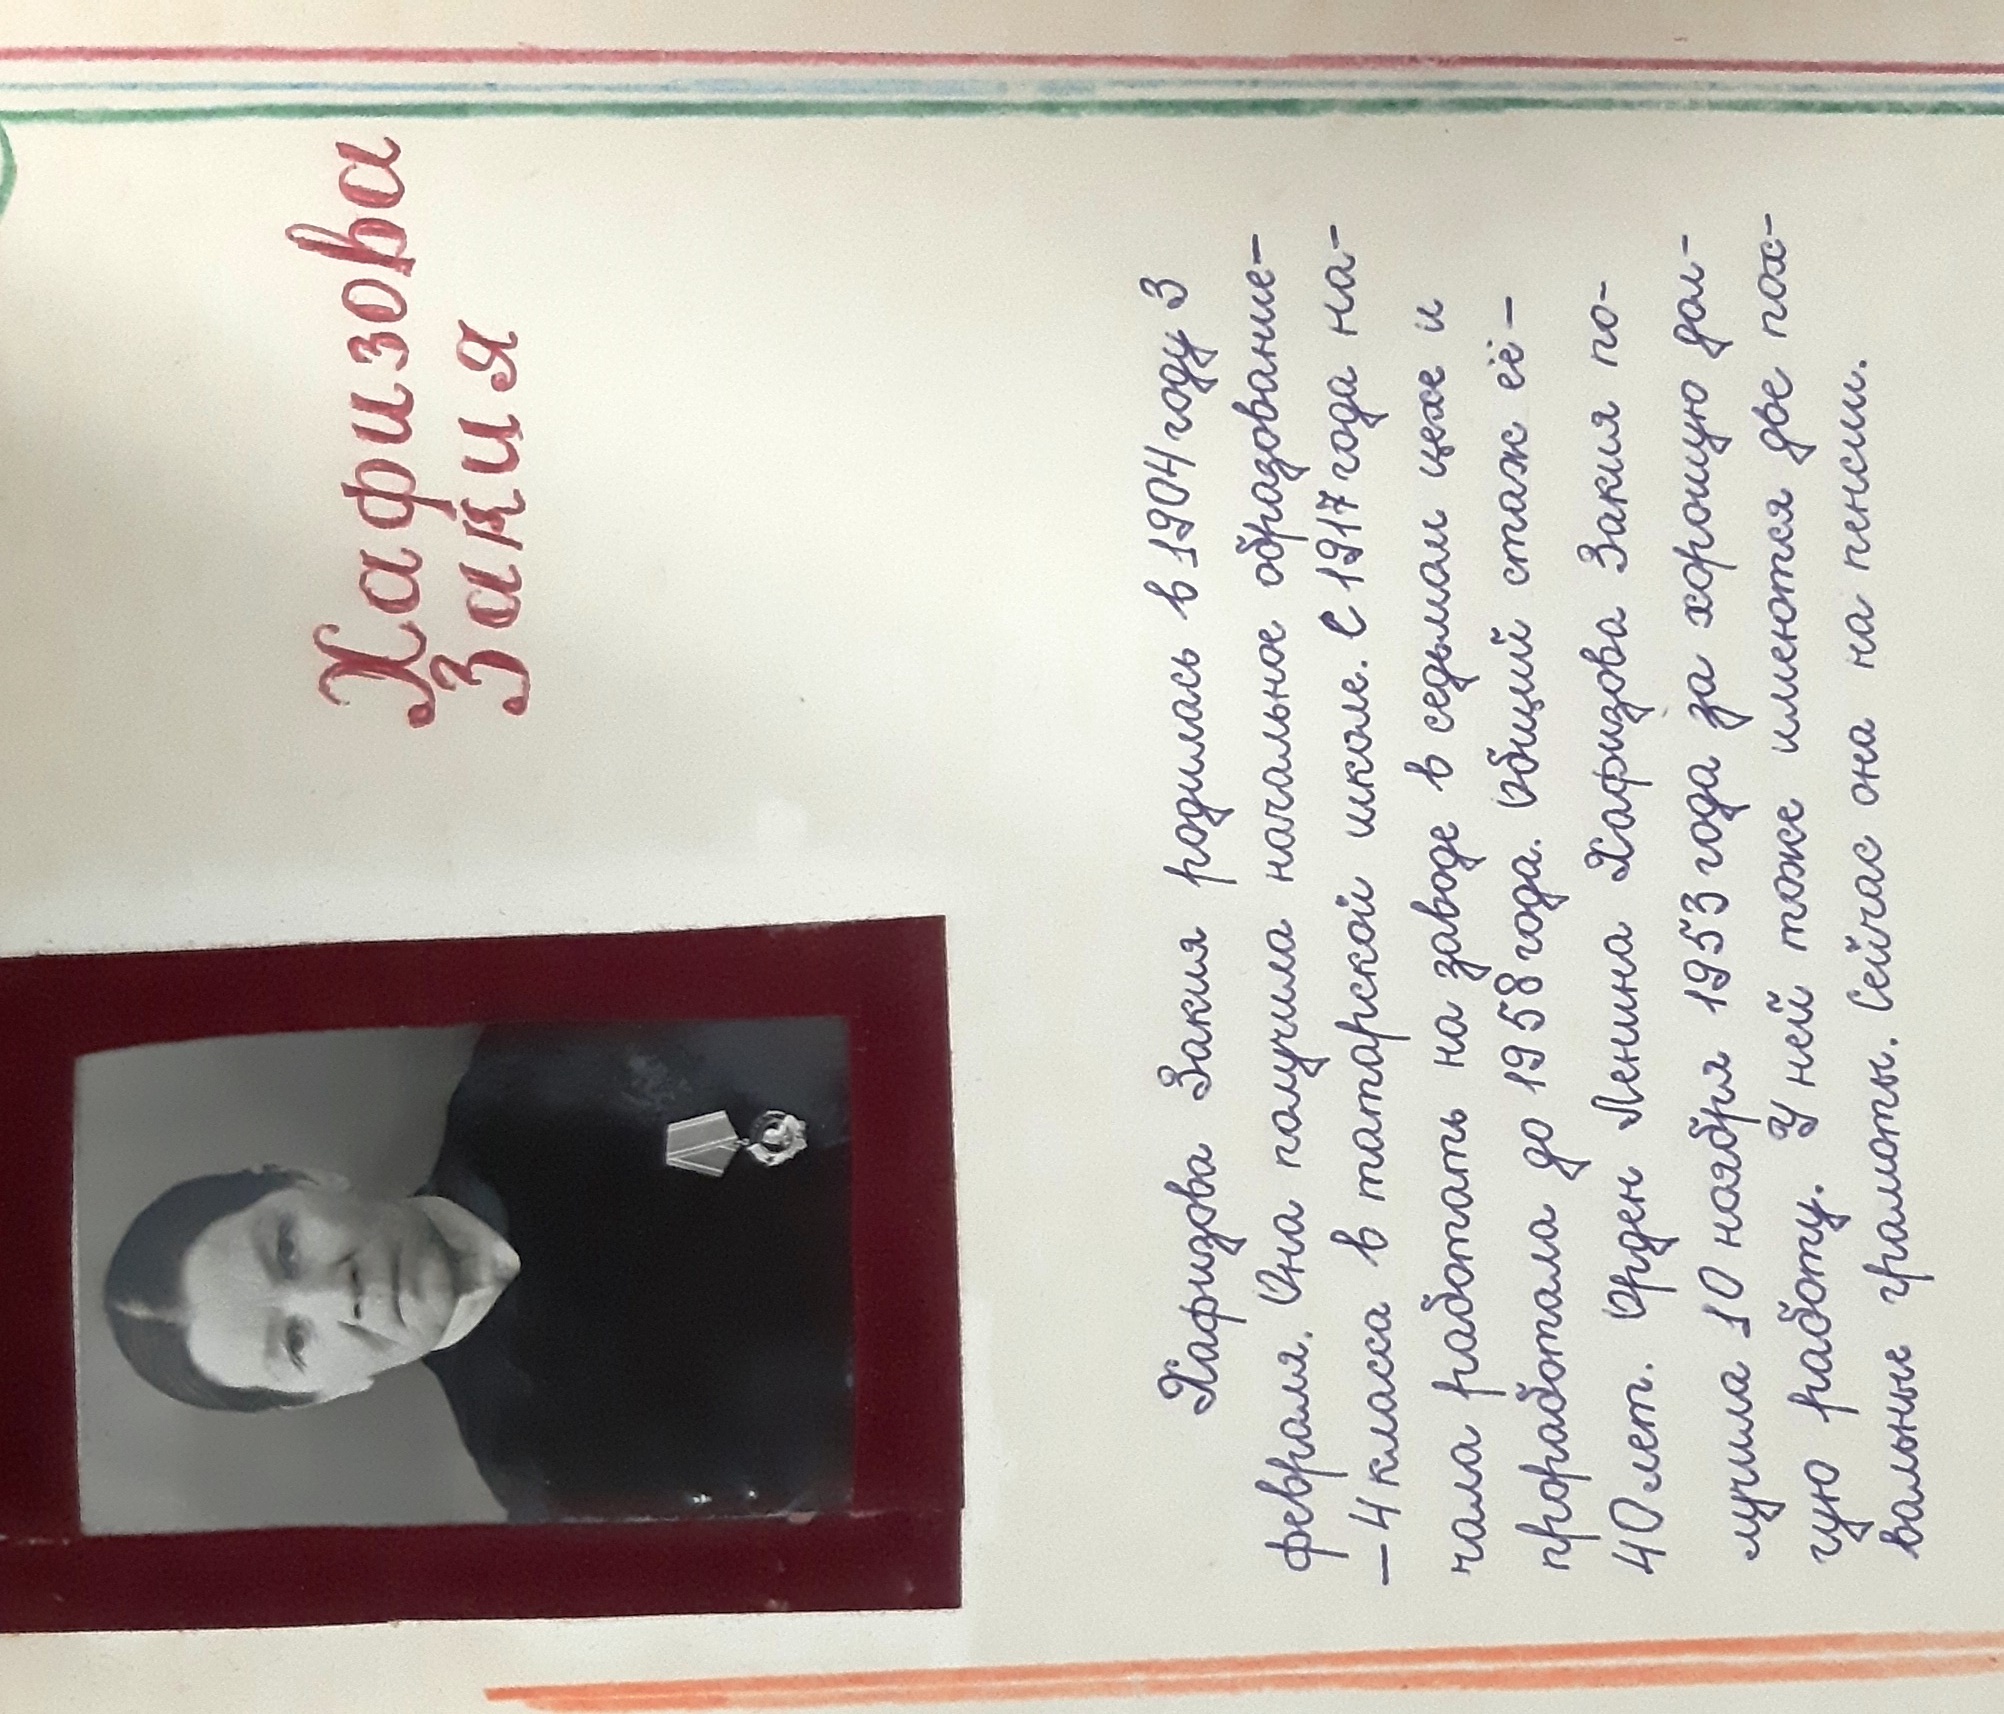 Хафизова
Закия
Хафизова Закия родилась в 1904 году 3
февраля. Она получила начальное образование-
- 4 класса в татарской школе. С 1917 года на-
чала работать на заводе в седьмом цехе и
проработала до 1958 года. Общий стаж её -
40 лет. Орден Ленина Хафизова Закия по-
лучила 10 ноября 1953 года за хорошую дол-
гую работу. У ней тоже имеются две пох-
вальные грамоты. Сейчас она на пенсии.